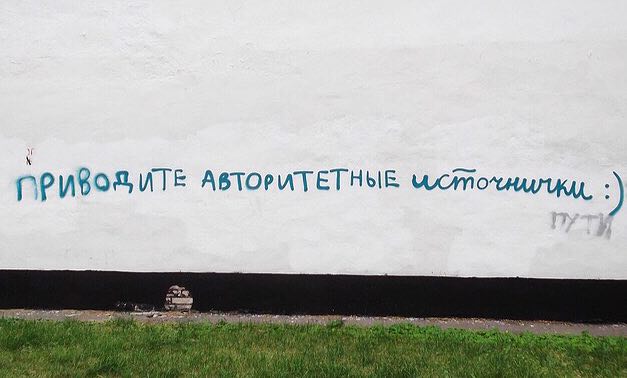 ПРИВОДИТЕ АВТОРИТЕТНЫЕ источнички :)
ПУТИ